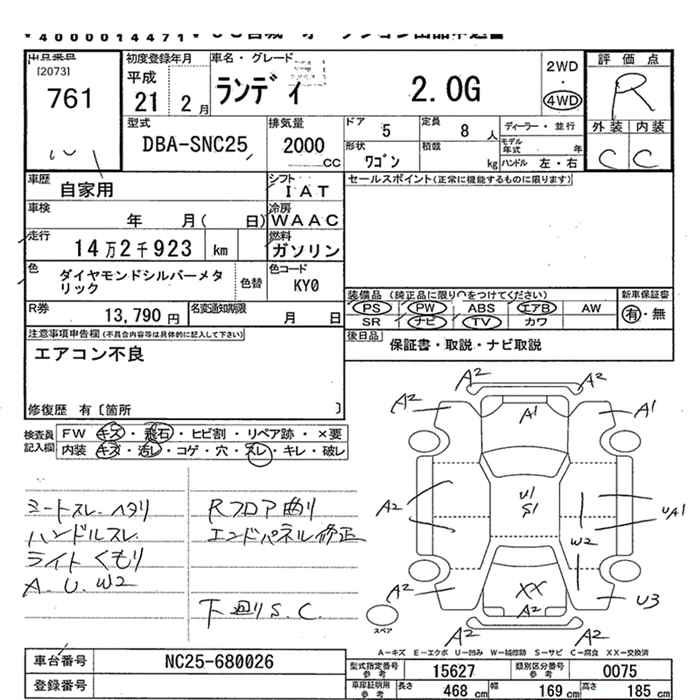 4000014471
出品票 [2073] 761
初度登録年月 平成 21 2月
車名・グレード ランディ 2.0G
2WD・4WD
評価点 R
外装 内装
C C
型式 DBA-SNC25
排気量 2000 CC
ドア 5 定員 8 人
ディーラー・並行
形状 ワゴン 積載 kg
モデル年式 年
ハンドル 左・右
車歴 自家用
シフト IAT
セールスポイント(正常に機能するものに限ります)
車検 年 月( 日)
冷房 WAAC
走行 14万2千923 km
燃料 ガソリン
色 ダイヤモンドシルバーメタリック
色替
色コード KY0
装備品 (純正品に限り○をつけてください)
新車保証書 有・無
PS PW ABS エアB AW
SR ナビ TV カワ
R券 13,790 円
名変通知期限 月 日
後日品 保証書・取説・ナビ取説
注意事項申告欄(不具合内容等は具体的に記入して下さい)
エアコン不良
修復歴 有 [箇所 ]
検査員記入欄
FW キズ・飛石・ヒビ割・リペア跡・×要
内装 キズ・汚レ・コゲ・穴・スレ・キレ・破レ
シートスレ.ヘタリ
ハンドルスレ
ライトくもり
A.U.W2
Rフロア曲り
エンドパネル修正
下廻りS.C.
A2 A2
A2 A1 A1
A2 U1 S1 UA1
W2
A2 XX U3
A2
A2 A2
スペア
A-キズ E-エクボ U-凹み W-補修跡 S-サビ C-腐食 XX-交換済
車台番号 NC25-680026
登録番号
型式指定番号 参考 15627
類別区分番号 参考 0075
車庫証明用 参考 長さ 468 cm 幅 169 cm 高さ 185 cm